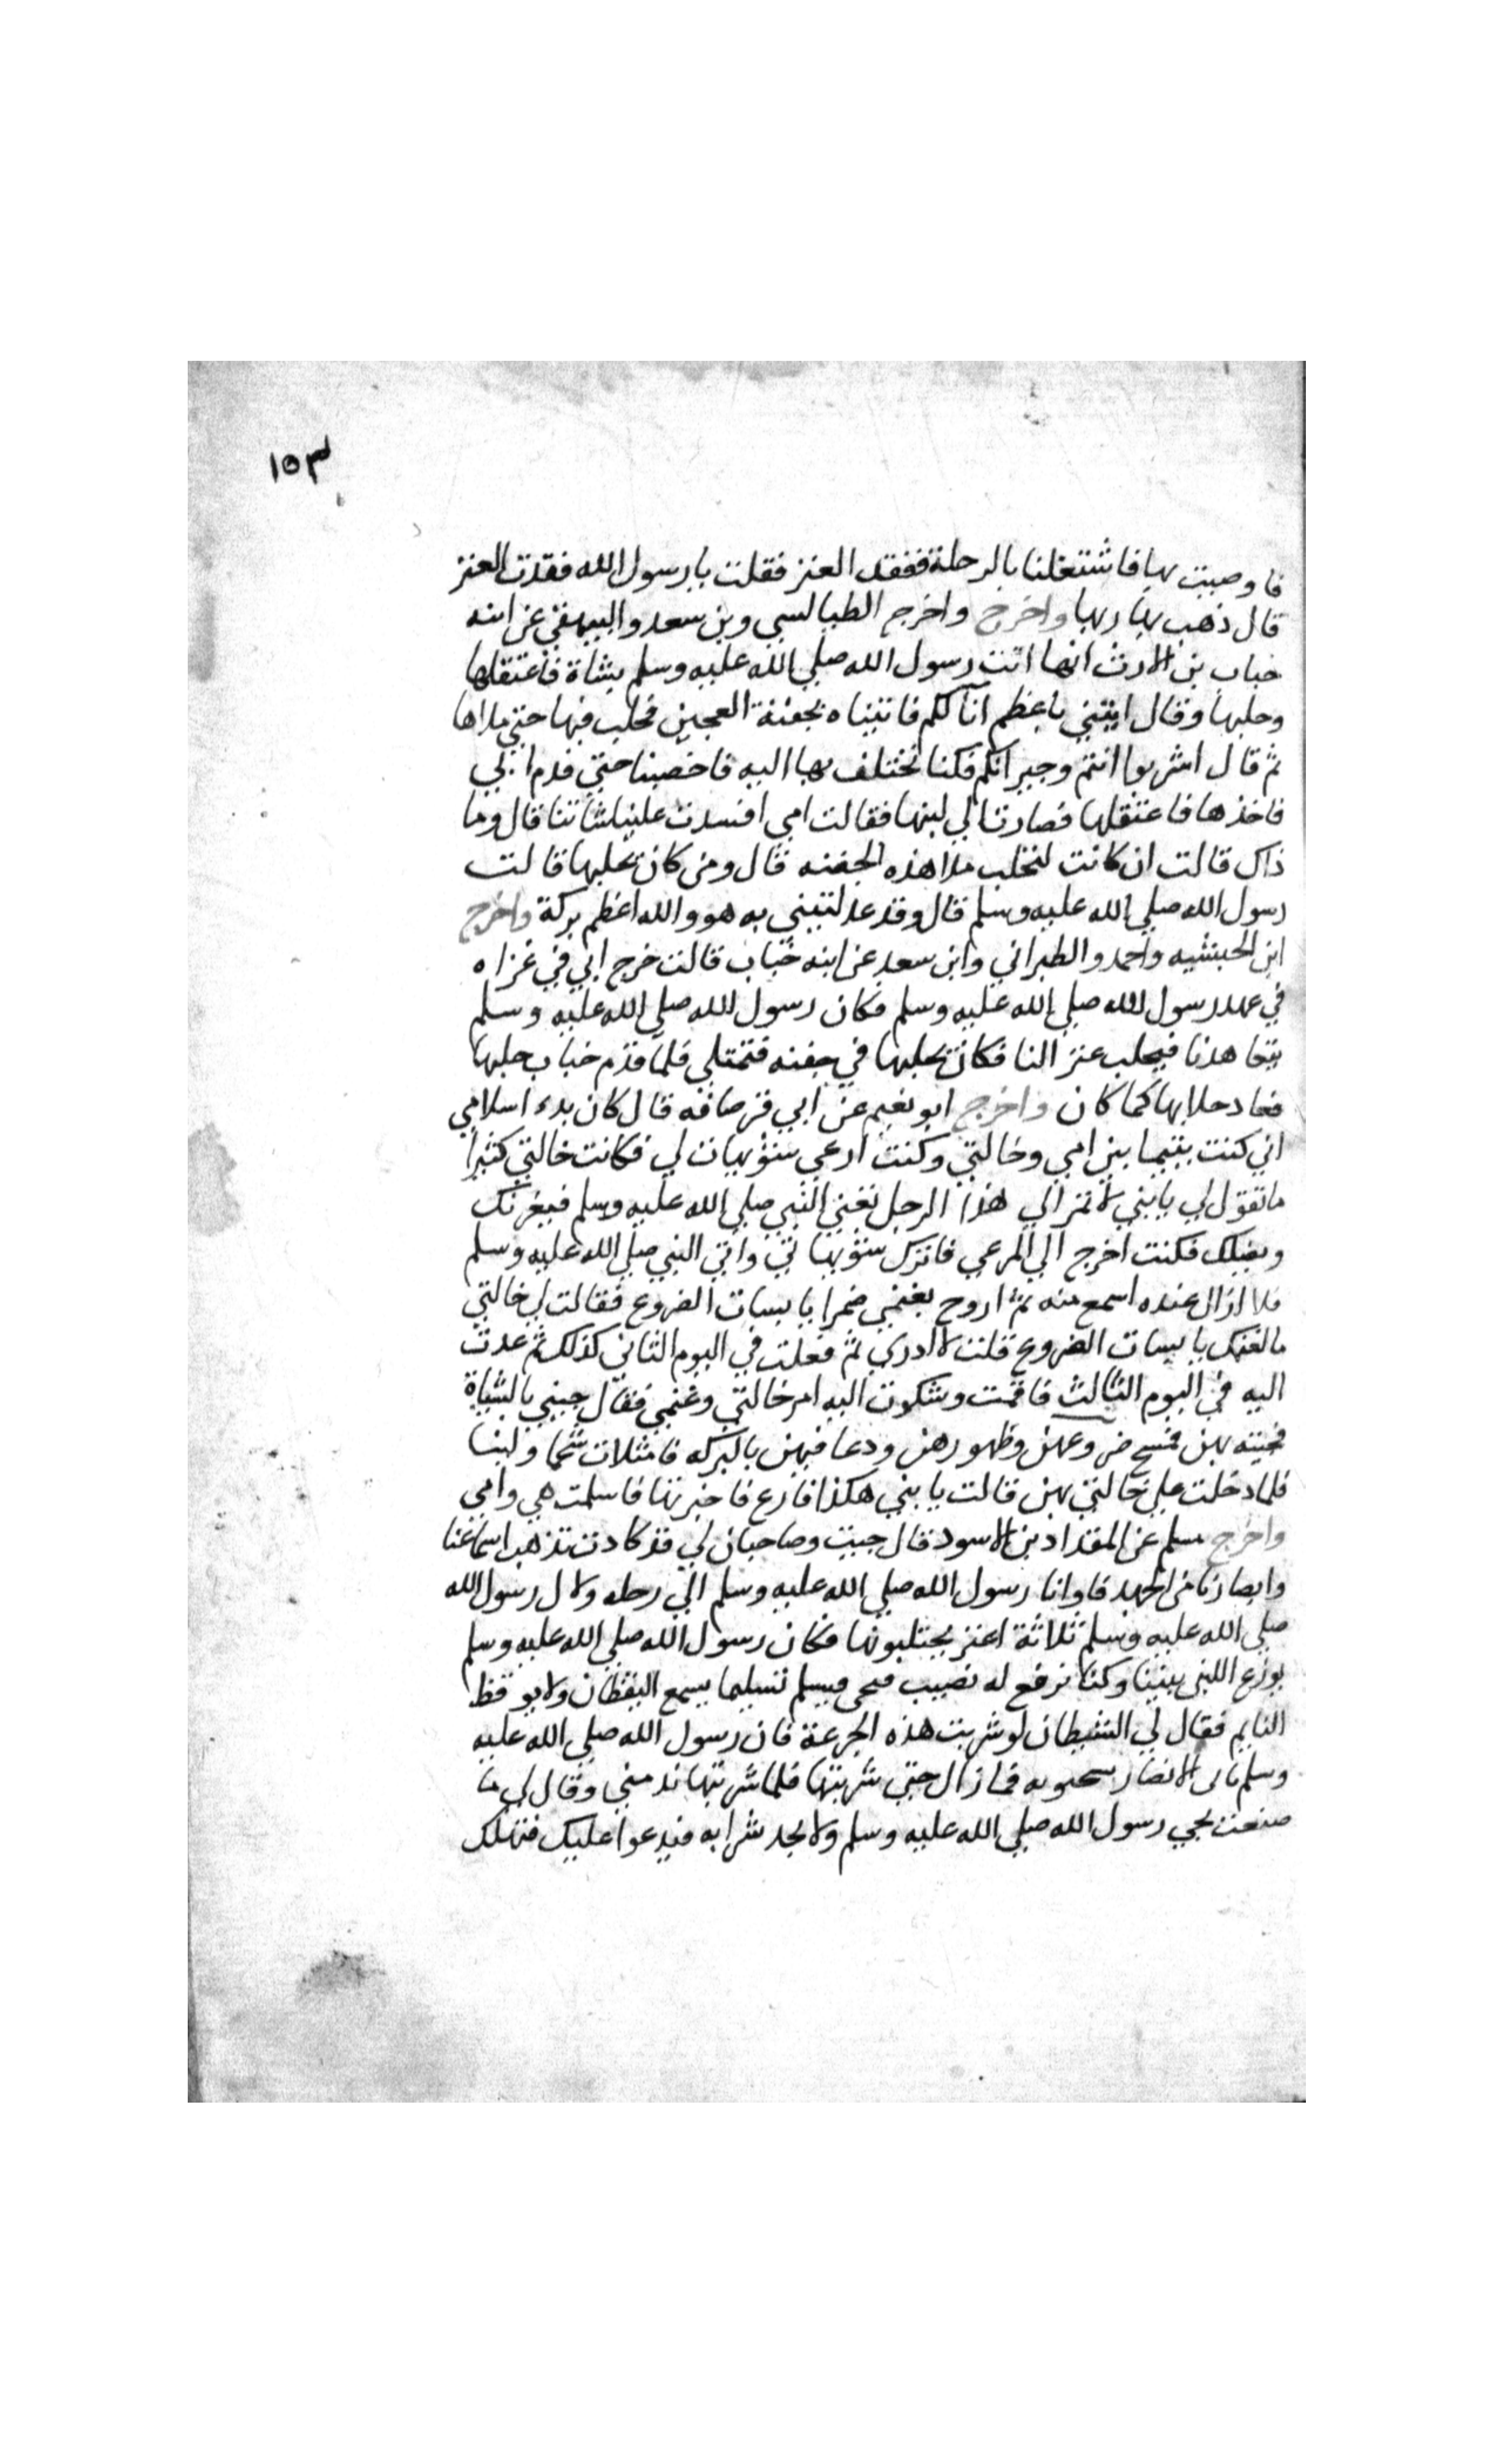 ١٥٣
فاوصيت بها فاشتغلنا بالرحلة ففقد العنز فقلت يا رسول الله فقدت العنز
قال ذهب بها ربها واخرج واخرج الطيالسي وبن سعد والبيهقي عن ابنه
خباب بن الارث انها اتت رسول الله صلي الله عليه وسلم بشاة فاعتقلها
وحلبها وقال ايتني باعظم انا لكم فاتيناه بجفنة العجين فحلب فيها حتي ملاها
ثم قال اشربوا انتم وجيرانكم فكنا نختلف بها اليه فاخصبنا حتي قدم ابي
فاخذها فاعتقلها فصارت الي لبنها فقالت امي افسدت علينا شاتنا قال وما
ذاك قالت ان كانت لتحلب ملا هذه الجفنه قال ومن كان يحلبها قالت
رسول الله صلي الله عليه وسلم قال وقد عدلتيني به هو والله اعظم بركة واخرج
ابن الحبشيه واحمد والطبراني وابن سعد عن ابنه خباب قالت خرج ابي في غزاه
في عهد رسول الله صلي الله عليه وسلم فكان رسول الله صلي الله عليه وسلم
يتعاهدنا فيحلب عنز النا فكان يحلبها في جفنه فتمتلي فلما قدم خباب حلبها
فعاد حلابها كما كان واخرج ابو نعيم عن ابي قرصافه قال كان بدء اسلامي
اني كنت يتيما بين امي وخالتي وكنت ارعي شويهات لي فكانت خالتي كثيرا
ما تقول لي يا بني لا تمر الي هذا الرجل تعني النبي صلي الله عليه وسلم فيغرنك
ويضلك فكنت اخرج الي المرعي فاترك شويهاتي واتي النبي صلي الله عليه وسلم
فلا ازال عنده اسمع منه ثم اروح بغنمي ضمرا يابسات الضروع فقالت لي خالتي
ما لغنمك يابسات الضروع قلت لا ادري ثم فعلت في اليوم الثاني كذلك ثم عدت
اليه في اليوم الثالث فاقمت وشكوت اليه امر خالتي وغنمي فقال جيني بالشياة
فجيته بهن فمسح ضروعهن وظهورهن ودعا فيهن بالبركه فامتلات شحما ولبنا
فلما دخلت علي خالتي بهن قالت يا بني هكذا فارع فاخبرتها فاسلمت هي وامي
واخرج مسلم عن المقداد بن الاسود قال جيت وصاحبان لي قد كادت تذهب اسماعنا
وابصارنا من الجهد فاوانا رسول الله صلي الله عليه وسلم الي رحله ولال رسول الله
صلي الله عليه وسلم ثلاثة اعنز يحتلبونها فكان رسول الله صلي الله عليه وسلم
يوزع اللبن بيننا وكنا نرفع له نصيب فيسلم تسليما يسمع اليقظان ولا يوقظ
النايم فقال لي الشيطان لو شربت هذه الجرعة فان رسول الله صلي الله عليه
وسلم ياتي الانصار فما زال حتي شربتها فلما شربتها ندمني وقال لي ما
صنعت يجي رسول الله صلي الله عليه وسلم ولا يجد شرابه فيدعوا عليك فتهلك